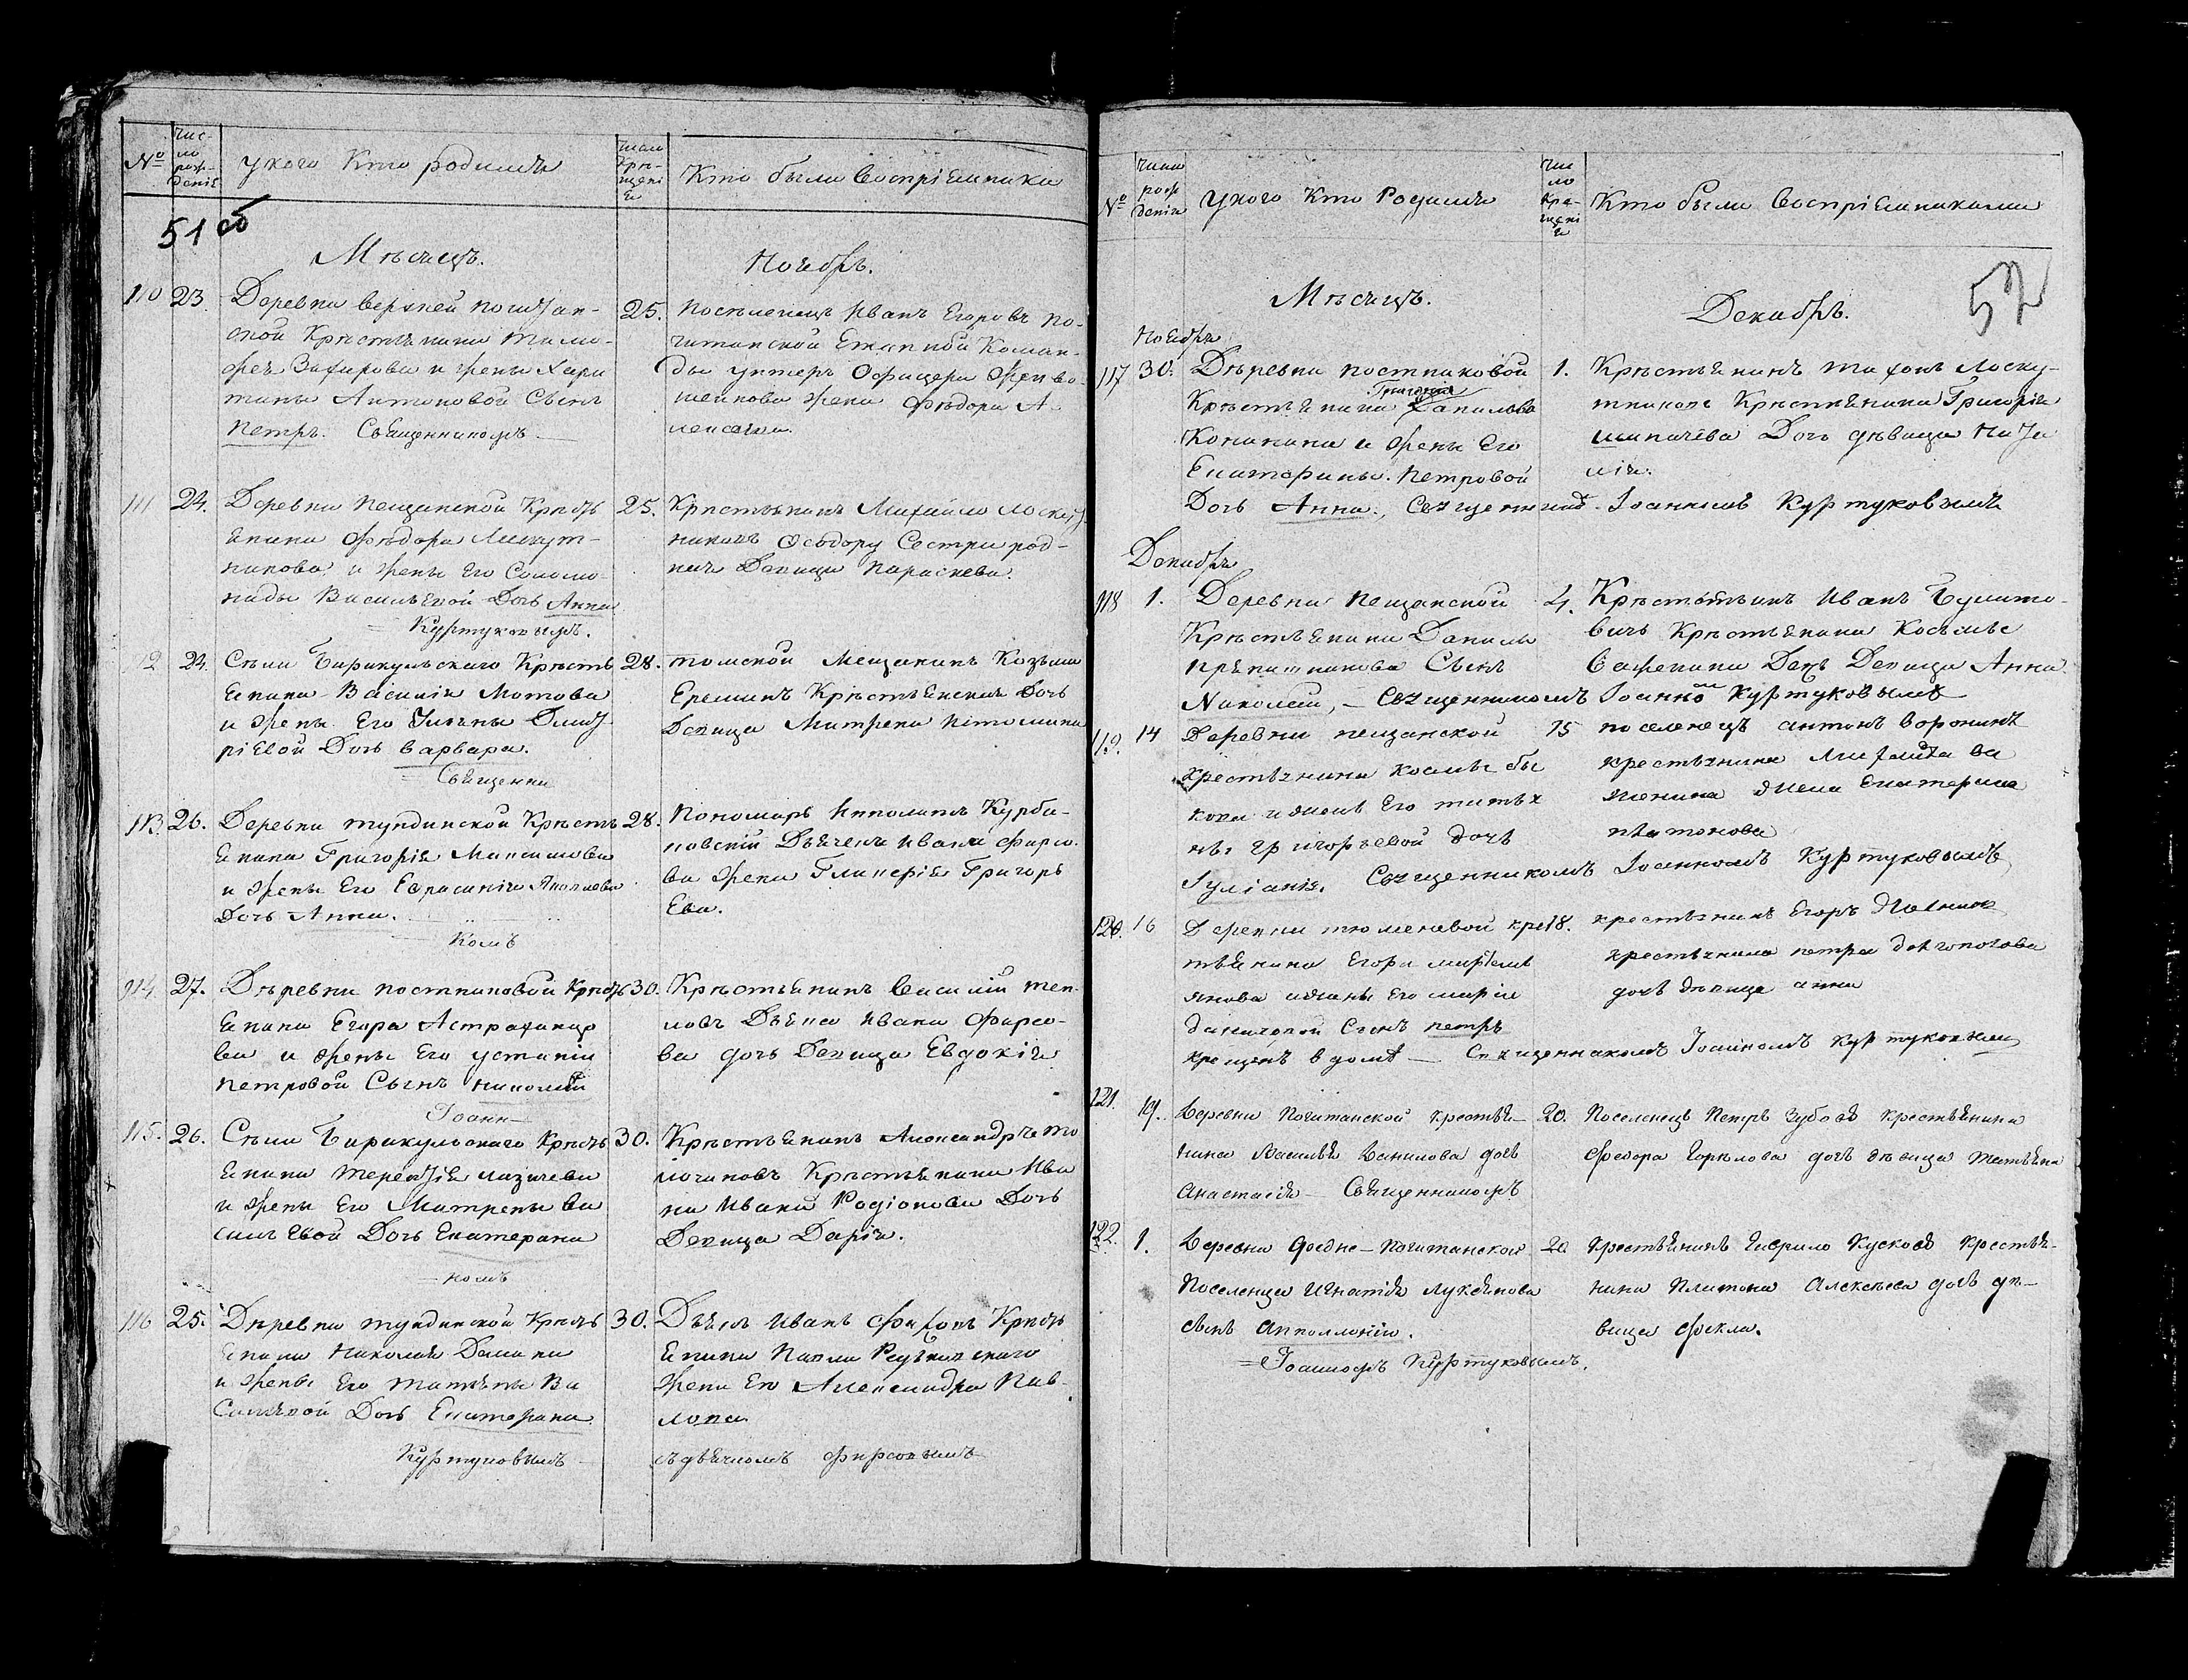 №
Чис-
ло
рож-
денія
у кого Кто родился
Число
Кре-
щені
я
Кто были Воспріемника
51 об
Мѣсяцъ.
Ноябрь.
110
23
Деревни верхней почитан-
ской Крестьянина Тимо-
фея Захарова и жены Хари
тины Антоновой Сынъ
Петръ. Священникомъ
25.
Поселенецъ Иванъ Егоровъ по-
читанской Етапной Коман-
ды унтеръ Офицера
жена Федора А-
лексеева.
111
24.
Деревни Пещанской Кресть
янина Федора Лоскут-
никова и жены Его Соломо-
ниды Васильевой Дочь Анна
Куртуковымъ.
25.
Крестьянинъ Михайло Лоскут-
никовъ Феодору Сестра род-
ная Девица Параскева.
112
24.
Села Барикульскаго Кресть
янина Василія Мотова
и жены Его Ульяны Дмит
ріевой Дочь Варвара.
Священни
28.
томской Мещанинъ Козьма
Ереминъ Крестьянская Дочь
Девица Матрена
113.
26.
Деревни тундинской Кресть
янина Григорія Максимова
и жены Его Ефросиніи
Дочь Анна.
комъ
28.
Пономарь Ипполитъ Курба-
новскій Дьячека Ивана Фирсо-
ва жена Гликерія Григорь
Ева.
114
27.
Деревни постниковой Кресть
янина Егора Астраханцо
ва и жены Его устиніи
Петровой Сынъ Николай
Іоанн
30.
Крестьянинъ Василій теп-
ловъ Дьячка Ивана Фирсо-
ва дочь Девица Евдокія
115.
26.
Села Барикульскаго Кресть
янина терентія лазичева
и жены Его Матрены Ва
сильевой Дочь Екатерина
номъ
30.
Крестьянинъ Александръ то
лочиковъ Крестьянина Ива
на Ивана Родіонова Дочь
Девица Дарія.
116
25.
Деревни тундинской Кресть
янина Николая Демина
и жены Его Татьяны Ва
Сильевой Дочь Екатерина
Куртуковымъ
30.
Дьячекъ Иванъ Фирсовъ Кресть
янина Павла
Жена Его Александра Пав-
лова
съ дьячкомъ Фирсовымъ
№
Число
рож
денія
У кого Кто Родился
Чис
ло
Кре-
щені
я
Кто были Воспріемниками
52
Мѣсяцъ.
Декабрь.
Ноябрь
117
30.
Деревни постниковой
Григорія
Крестьянина Данилова
Конинина и жены Его
Екатерины Петровой
Дочь Анна, Священникомъ Іоанномъ Куртуковымъ
1.
Крестьянинъ Тихонъ Лоску-
тниковъ Крестьянина Григорія
шипачева Дочь девица Ната
лія.
Декабрь
118
1.
Деревни Пещанской
Крестьянина Данилы
Сынъ
Николай, — Священникомъ Іоанномъ Куртуковымъ
4.
Крестьянинъ Иванъ Булато-
вичъ Крестьянина Косьмы
Саженина Дочь Девица Анна
119.
14
Деревни пещанской
крестьянина космы бы
кова и жены Его татья
ны григорьевой дочь
Іуліанія. Священникомъ Іоанномъ Куртуковымъ
15
поселенецъ антонъ воронинъ
крестьянина Михаила Са
женина жена Екатерина
платонова
120.
16
Деревни тюменевой крес
тьянина Егора
янова и жены Его маріи
даниловой Сынъ петръ
крещенъ в доме — Священникомъ Іоанномъ Куртуковымъ
18.
крестьянинъ Егоръ
крестьянина петра долгополова
дочь девица анна
121.
19.
Деревни Почитанской крестья-
нина Василья Данилова дочь
Анастасія — Священникомъ
20.
Поселенецъ Петръ Зубовъ крестьянина
Федора Горѣлова дочь дѣвица Татьяна
122.
1.
Деревни Средне-Почитанской
Поселенца Игнатія Лукьянова
сынъ Апполлоній.
=Іоанномъ Куртуковымъ.
20
Крестьянинъ Гаврило Кусковъ крестья-
нина Платона Алексѣева дочь дѣ-
вица Фекла.